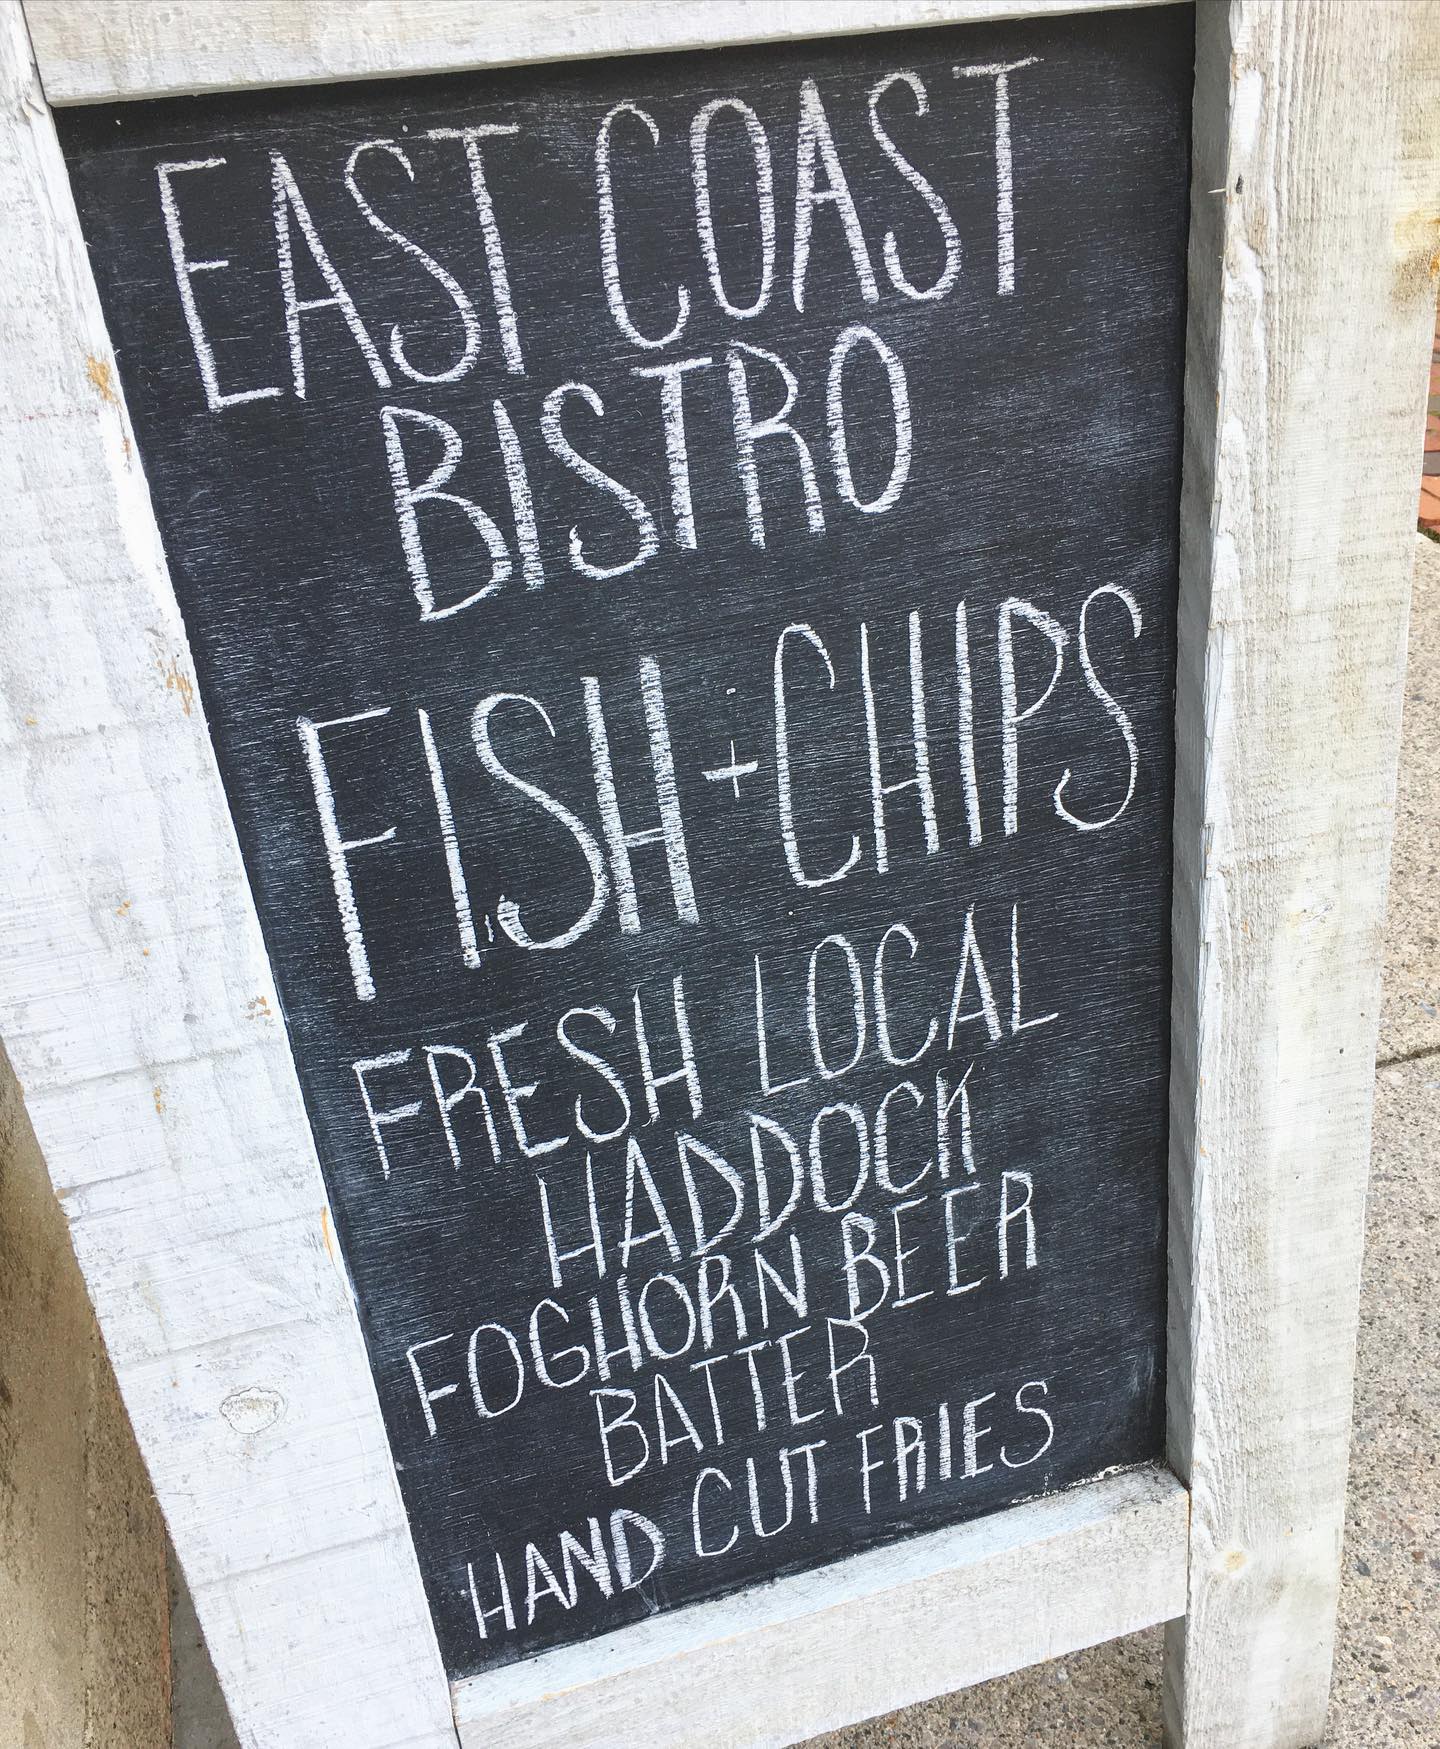 EAST COAST
BISTRO
FISH + CHIPS
FRESH LOCAL
HADDOCK
FOGHORN BEER
BATTER
HAND CUT FRIES